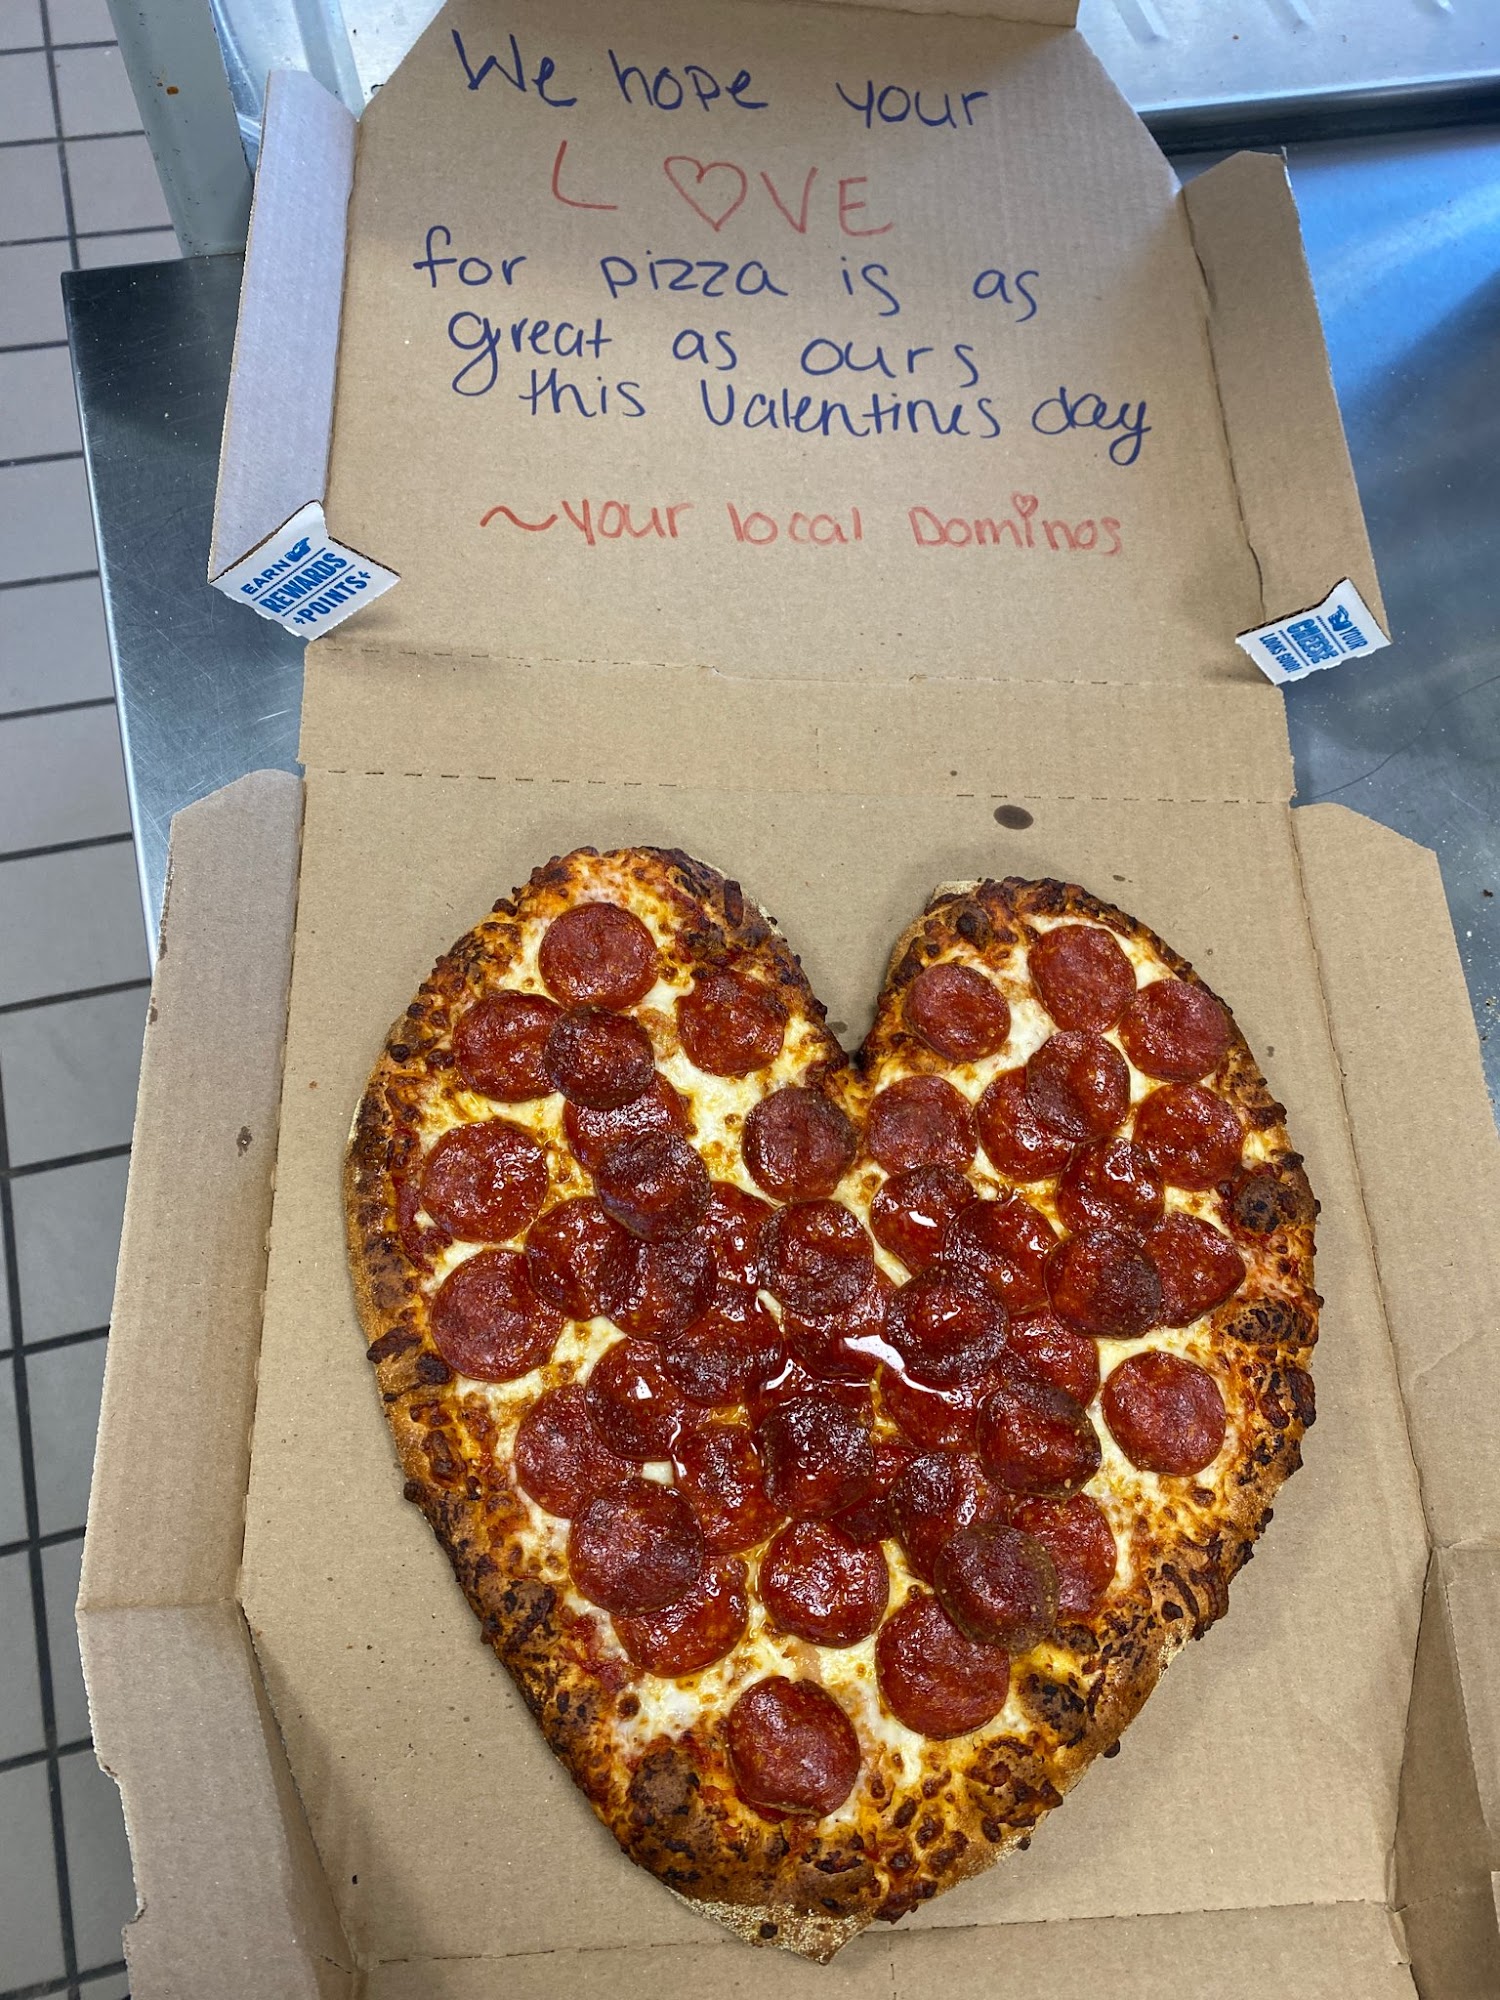 We hope your
L♡VE
for pizza is as
great as ours
this Valentines day
~your local Dominos
EARN
REWARDS
POINTS
YOUR
CHEESE
LOOKS GOOD!